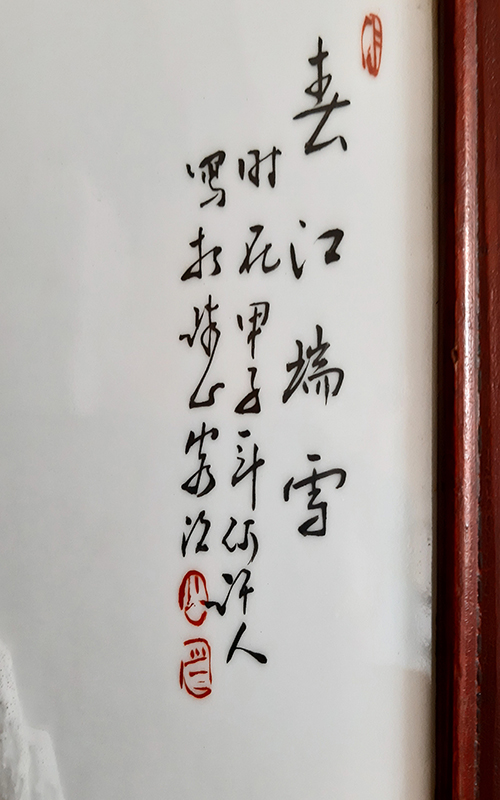 春江瑞雪
时在甲子年何许人
写於珠山客次